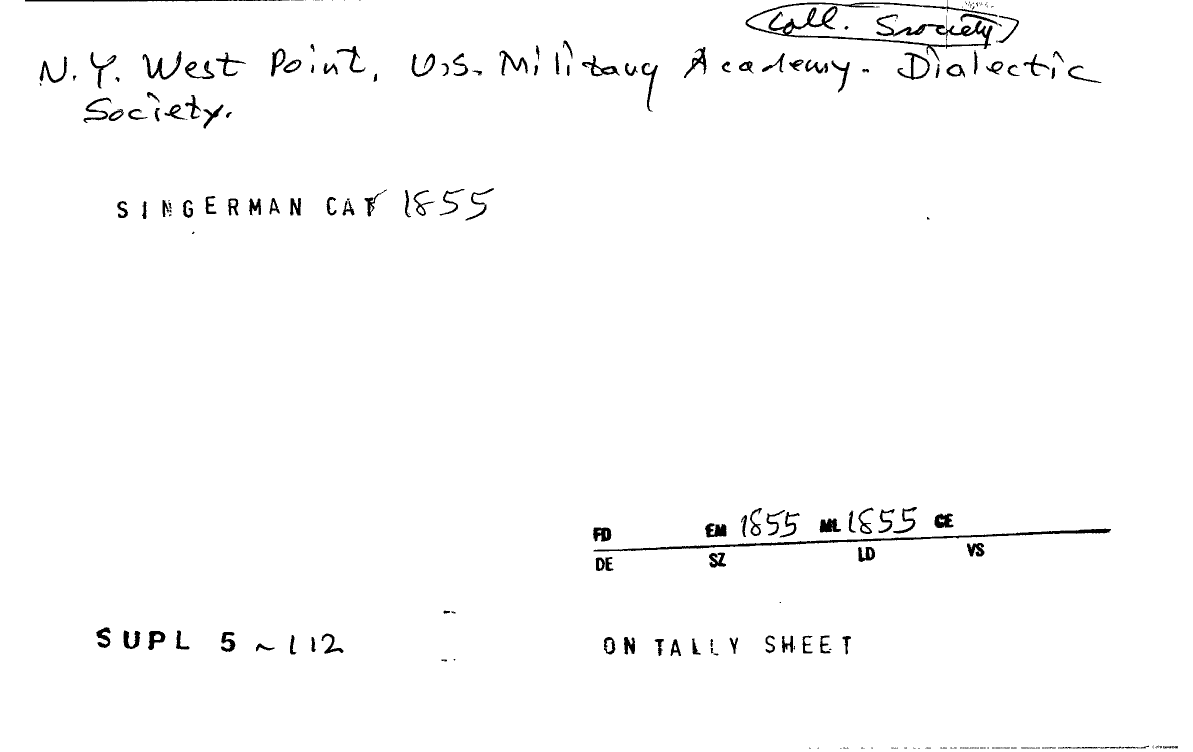 Coll. Society
N.Y. West Point, U.S. Military Academy. Dialectic
Society.
SINGERMAN CAT 1855
FD EM 1855 ML 1855 CE
DE SZ LD VS
SUPL 5 ~ 112
ON TALLY SHEET